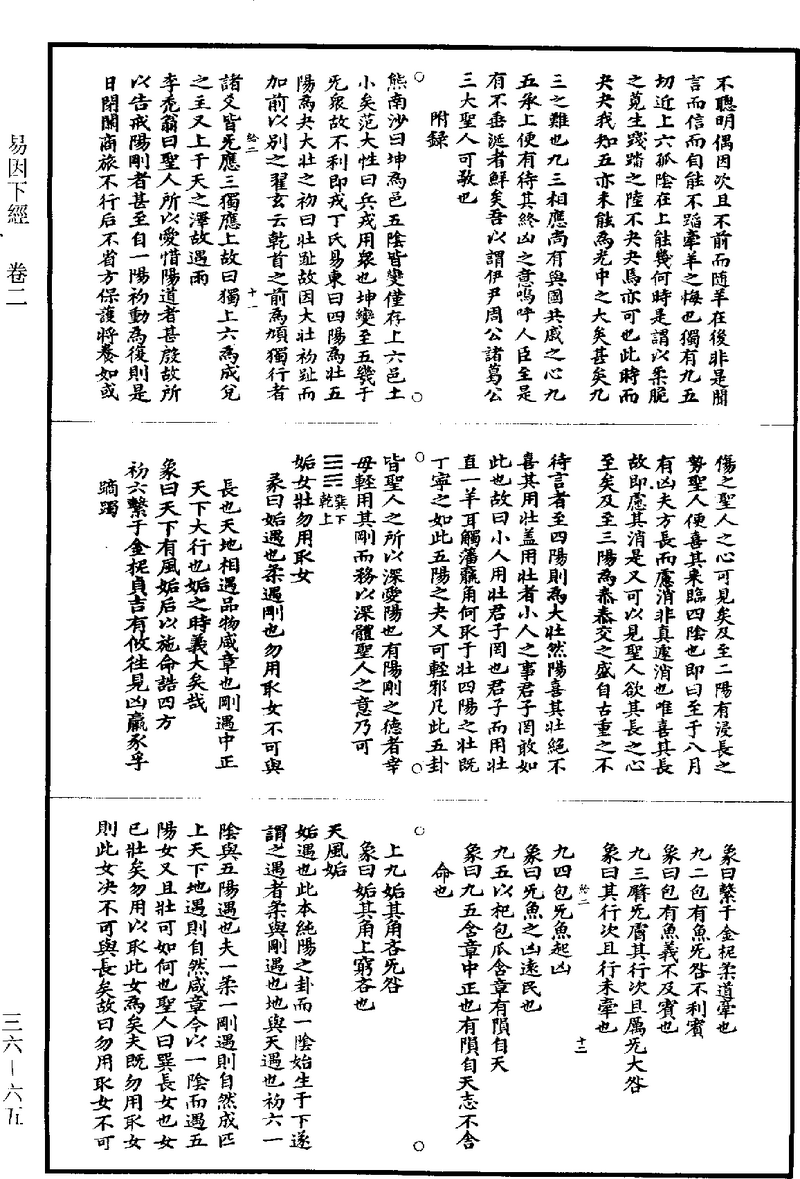 不聰明偶因次且不前而随羊在後非是聞
言而信而自能不蹈牽羊之悔也獨有九五
切近上六孤陰在上能幾何時是謂以柔脆
之莧生踐踏之陸不夬夬焉亦可也此時而
夬夬我知五亦未能為光中之大矣甚矣九
三之難也九三相應尚有與國共戚之心九
五承上便有待其終凶之意嗚呼人臣至是
有不垂涎者鮮矣吾以謂伊尹周公諸葛公
三大聖人可敬也
附録
熊南沙曰坤為邑五陰皆變僅存上六邑土
小矣范大性曰兵戎用衆也坤變至五幾于
旡衆故不利即戎丁氏易東曰四陽為壯五
陽為夬大壯之初曰壯趾故因大壯初趾而
加前以别之翟玄云乾首之前為頄獨行者
諸爻皆旡應三獨應上故曰獨上六為成兌
之主又上于天之澤故遇雨
李禿翁曰聖人所以愛惜陽道者甚殷故所
以告戒陽剛者甚至自一陽初動為復則是
日閉關商旅不行后不省方保護將養如或
傷之聖人之心可見矣及至二陽有浸長之
勢聖人便喜其来臨四陰也即曰至于八月
有凶夫方長而慮消非真遽消也唯喜其長
故即慮其消是又可以見聖人欲其長之心
至矣及至三陽為泰泰交之盛自古重之不
待言者至四陽則為大壯然陽喜其壯絕不
喜其用壯盖用壯者小人之事君子罔敢如
此也故曰小人用壯君子罔也君子而用壯
直一羊耳觸藩羸角何取于壯四陽之壯既
丁寧之如此五陽之夬又可輕邪凡此五卦
皆聖人之所以深愛陽也有陽剛之德者幸
毋輕用其剛而務以深體聖人之意乃可
巽下
乾上
姤女壯勿用取女
彖曰姤遇也柔遇剛也勿用取女不可與
長也天地相遇品物咸章也剛遇中正
天下大行也姤之時義大矣哉
象曰天下有風姤后以施命誥四方
初六繫于金柅貞吉有攸往見凶羸豕孚
蹢躅
象曰繫于金柅柔道牽也
九二包有魚旡咎不利賓
象曰包有魚義不及賓也
九三臀旡膚其行次且厲旡大咎
象曰其行次且行未牽也
九四包旡魚起凶
象曰旡魚之凶遠民也
九五以杞包瓜含章有隕自天
象曰九五含章中正也有隕自天志不舍
命也
上九姤其角吝旡咎
象曰姤其角上窮吝也
天風姤
姤遇也此本純陽之卦而一陰始生于下遂
謂之遇者柔與剛遇也地與天遇也初六一
陰與五陽遇也夫一柔一剛遇則自然成匹
上天下地遇則自然咸章今以一陰而遇五
陽女又且壯可如何也聖人曰巽長女也女
已壯矣勿用以取此女為矣夫既勿用取女
則此女决不可與長矣故曰勿用取女不可
易因下經 卷二
三六－六五